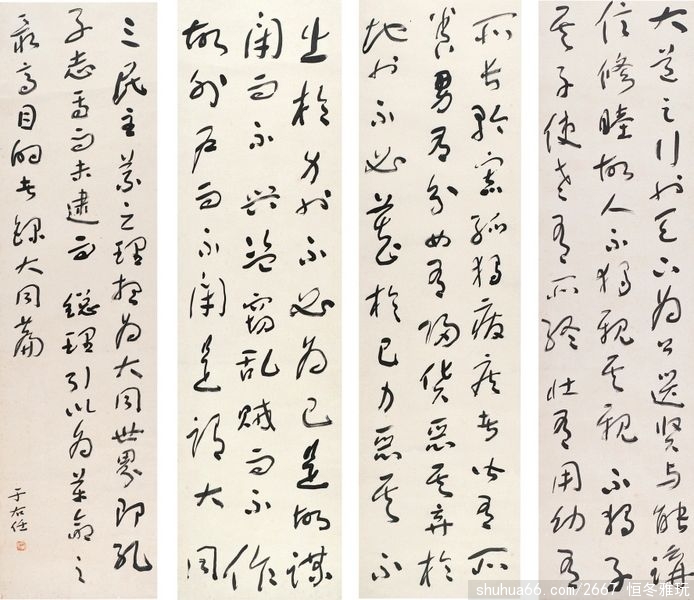 大道之行也天下為公選賢与能講
信修睦故人不獨親其親不獨子
其子使老有所終壯有用幼有
所長矜寡孤獨廢疾者皆有所
養男有分女有歸貨惡其弃於
地也不必藏於己力惡其不
出於身也不必為己是故謀
閉而不興盜竊乱賊而不作
故外戶而不閉是謂大同
三民主義之理想為大同世界即孔
子志焉而未逮而 總理引以為革命之
最高目的者錄大同篇
于右任
shuhua66.com/2667 恒冬雅玩